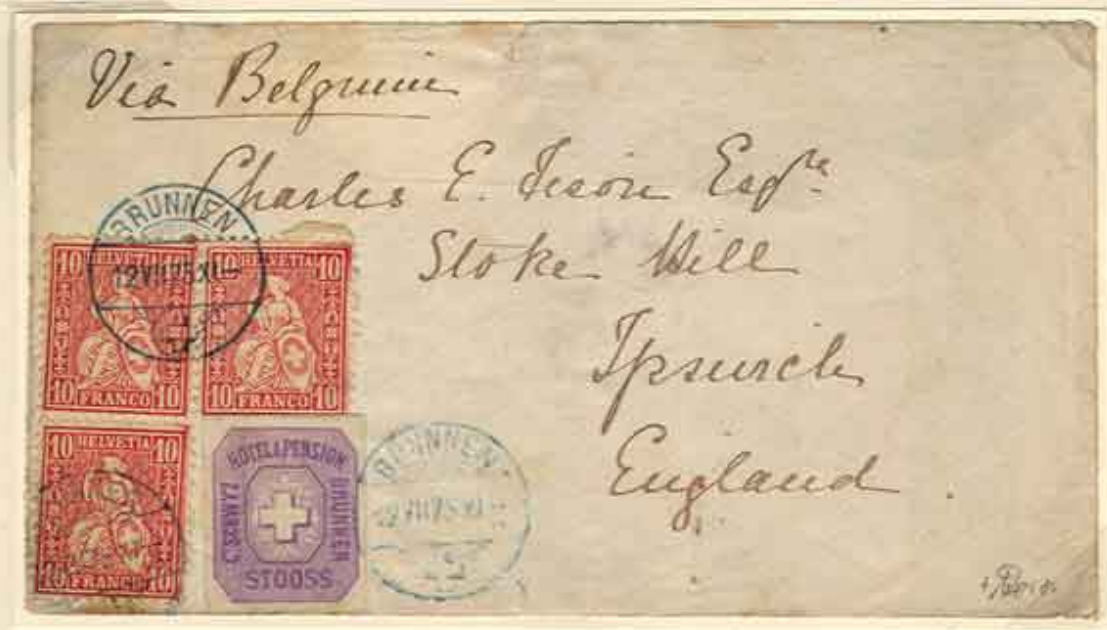 Via Belgium
Charles E. Tison Esqre
Stoke Hill
Ipswich
England
BRUNNEN
12 VII 75 XI
10 HELVETIA 10
10 FRANCO 10
10 HELVETIA 10
10 FRANCO 10
10 HELVETIA 10
10 FRANCO 10
HOTEL & PENSION
BRUNNEN
C. SCHWYZ
STOOSS
BRUNNEN
12 VII 75 XI